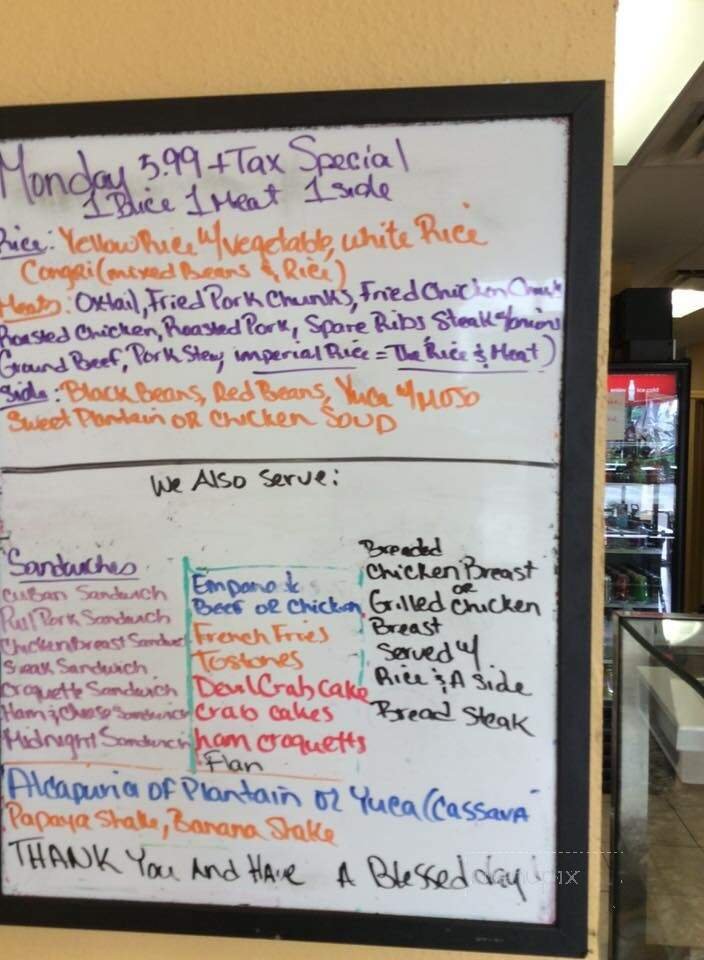 Monday 5.99 + Tax Special
1 Rice 1 Meat 1 side
Rice: Yellow Rice w/vegetable, white Rice
Congri (mixed Beans & Rice)
Meats: Oxtail, Fried Pork Chunks, Fried Chicken Chunk
Roasted Chicken, Roasted Pork, Spare Ribs Steak w/onions
Ground Beef, Pork Stew imperial Rice = The Rice & Meat)
Side: Black Beans, Red Beans, Yuca w/MOJO
Sweet Plantain OR Chicken SOUP
We Also Serve:
Sandwiches
Cuban Sandwich
Pull Pork Sandwich
Chicken Breast Sandwich
Steak Sandwich
Croquette Sandwich
Ham & Cheese Sandwich
Midnight Sandwich
Beef OR Chicken
French Fries
Tostones
Devil Crab Cake
Crab cakes
ham croquetts
Flan
Breaded
Chicken Breast
or
Grilled Chicken
Breast
Served w/
Rice & A Side
Bread Steak
Alcapuria of Plantain OR Yuca (Cassava
Papaya Shake, Banana Shake
THANK You AND HAVE A Blessed day!
enjoy ice cold